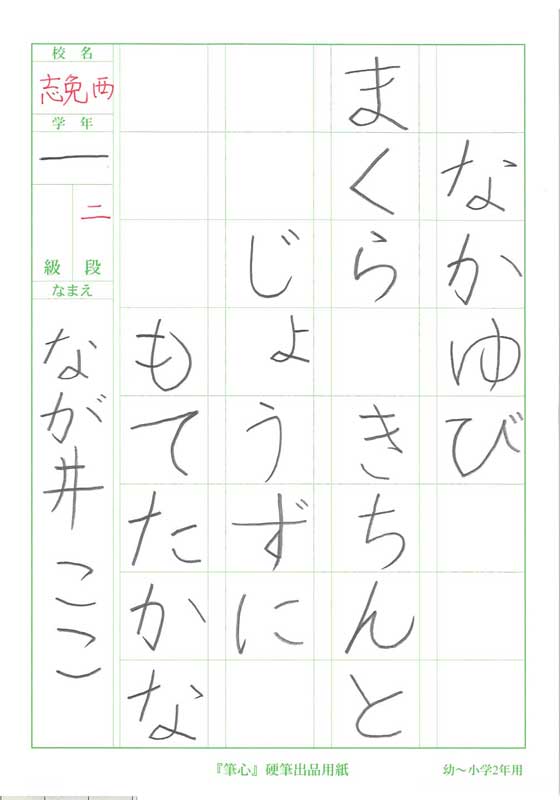 なかゆび
まくら きちんと
じょうずに
もてたかな
校名
志免西
学年
一
二
級 段
なまえ
なが井 ここ
『筆心』硬筆出品用紙
幼〜小学2年用